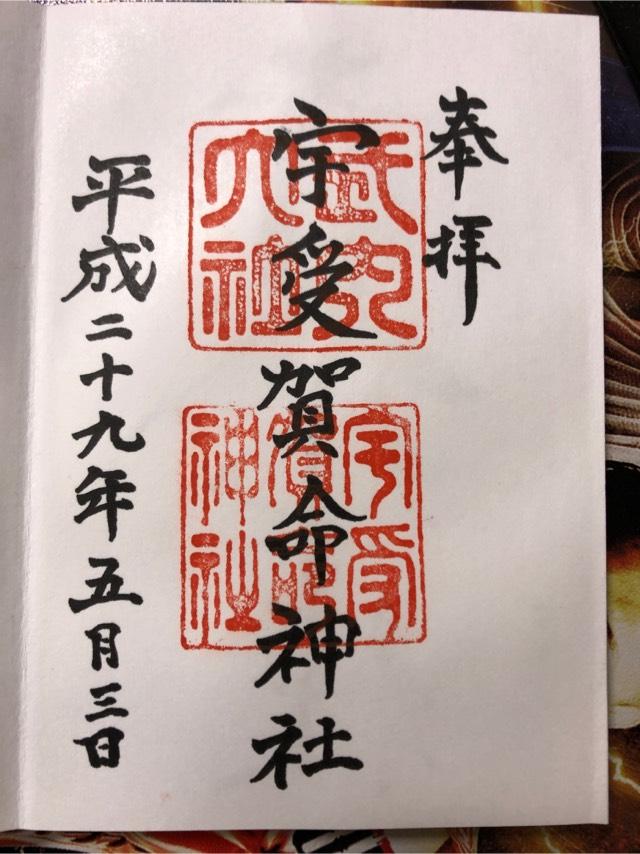 奉拝
宇受賀命神社
平成二十九年五月三日
宇受
賀命
神社